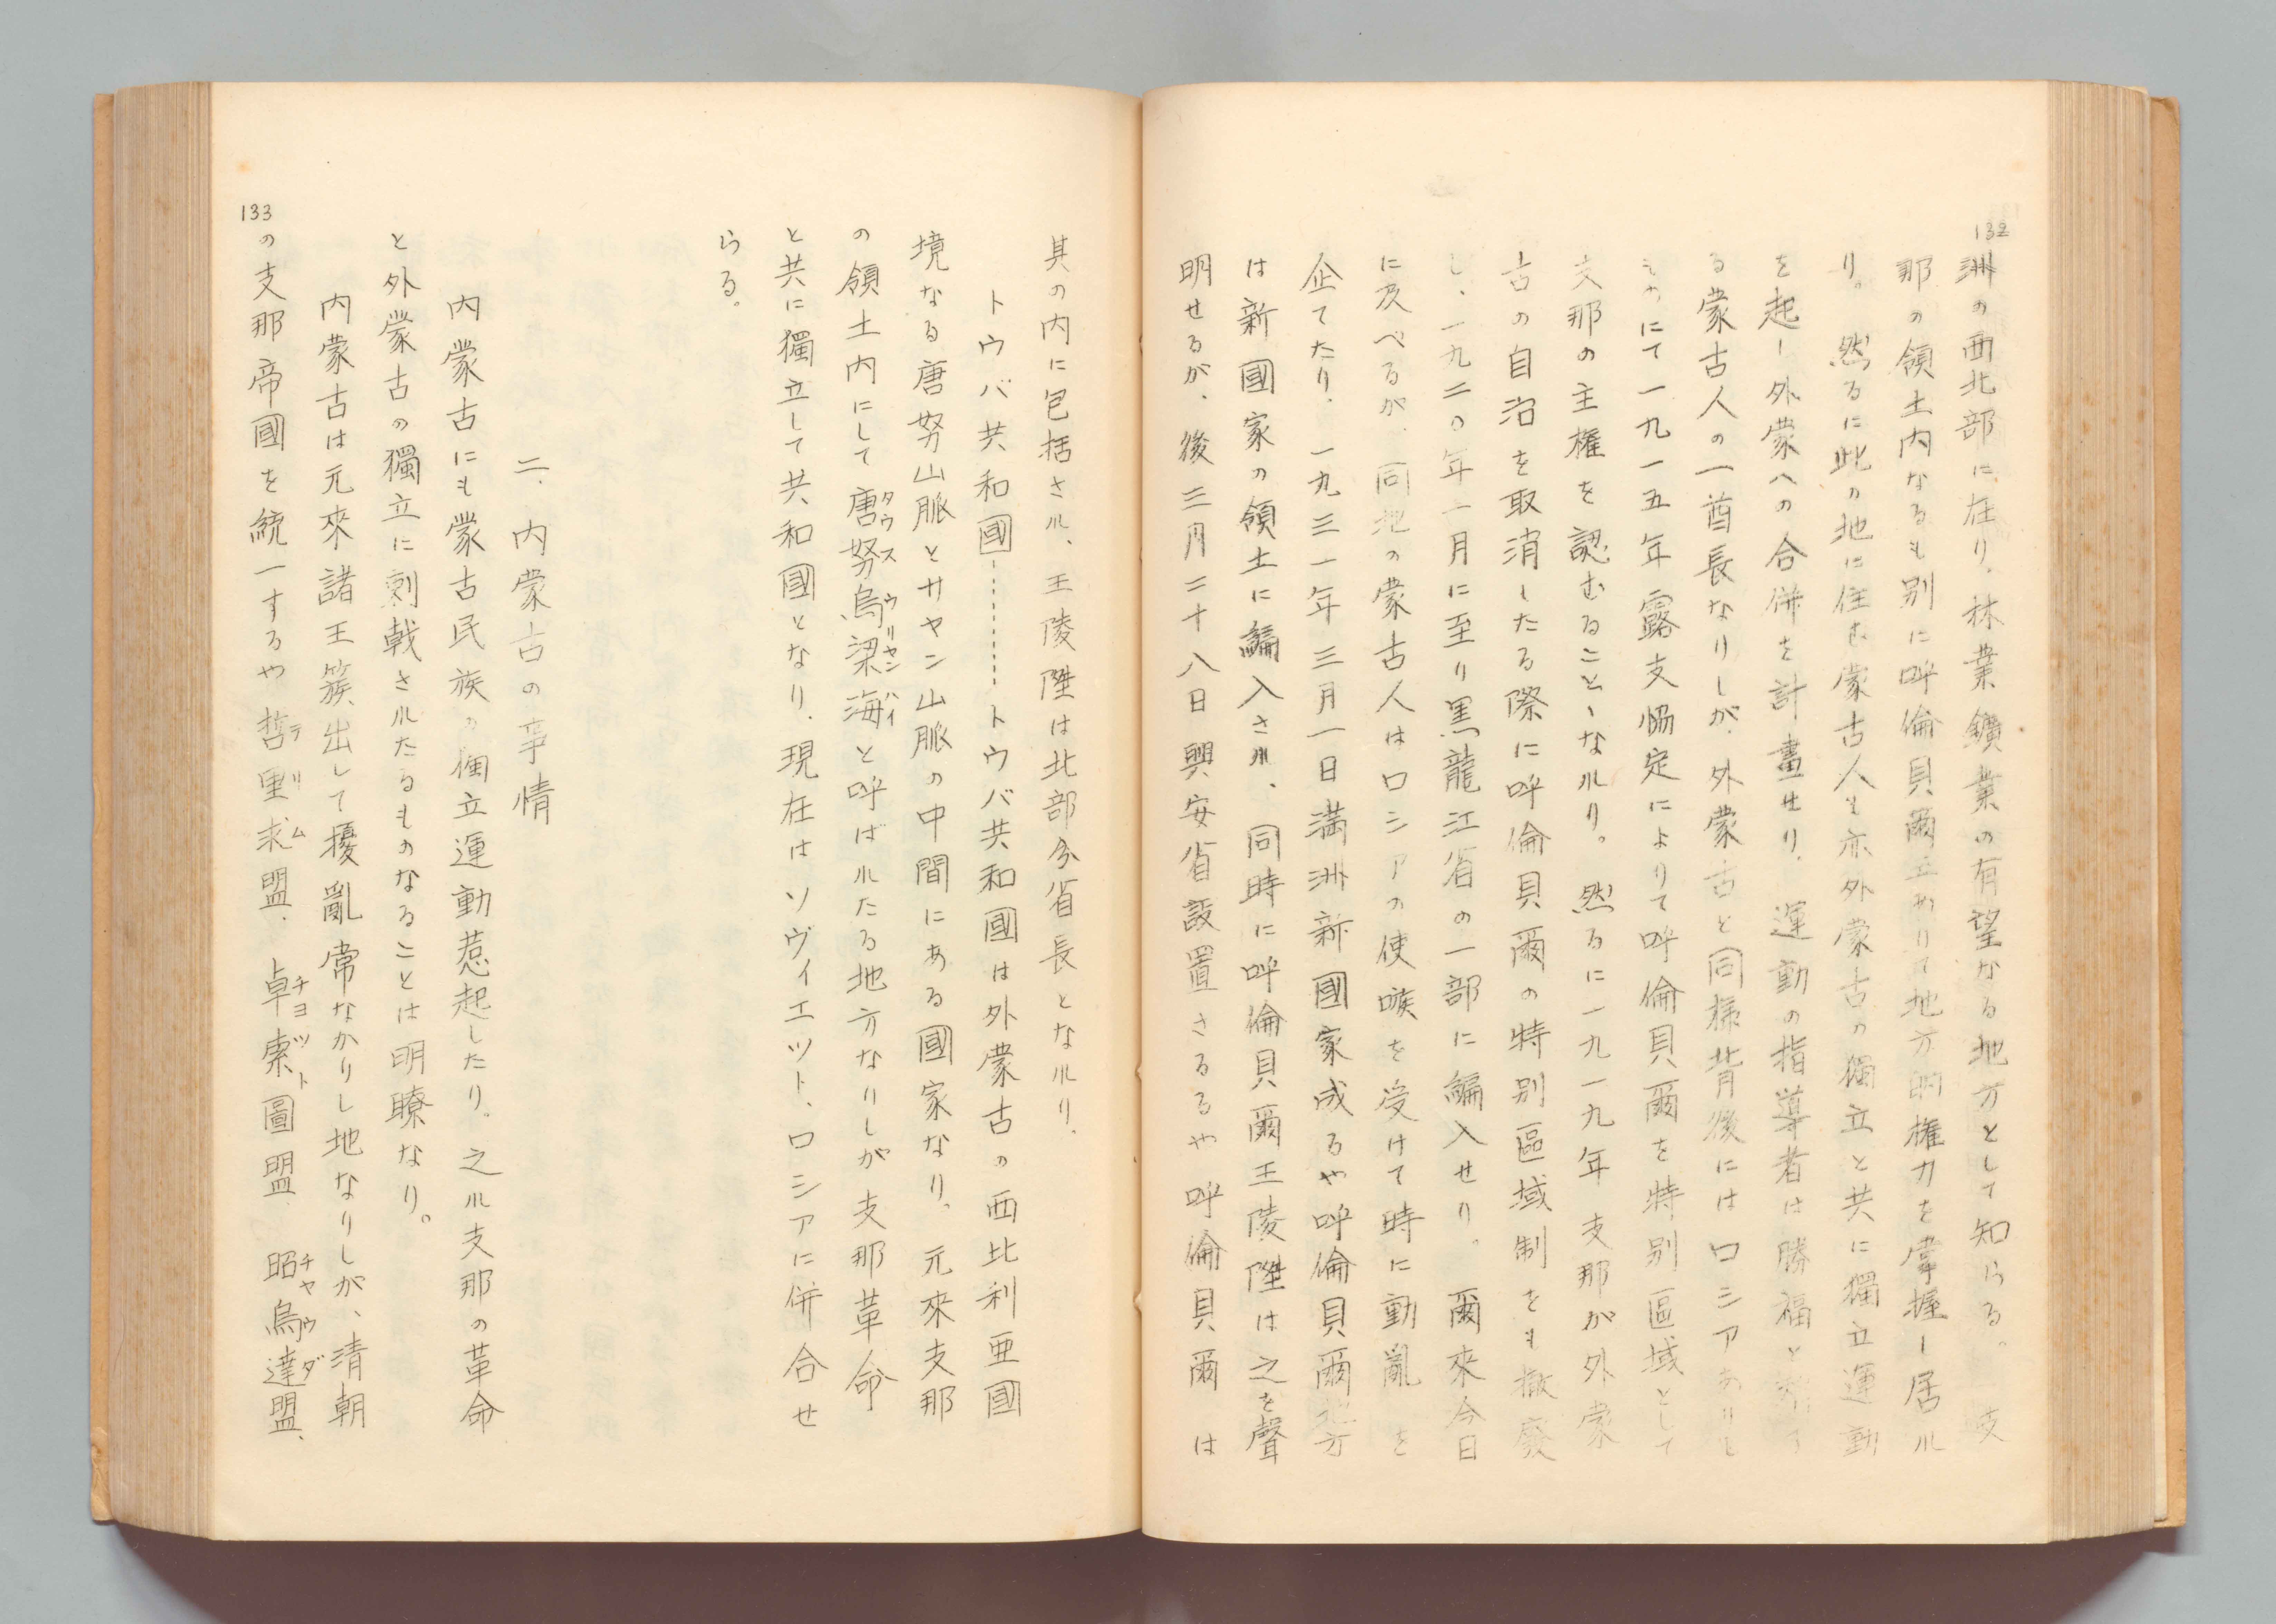 132
洲の西北部に在り、林業鑛業の有望なる地方として知らる。支
那の領土内なるも別に呼倫貝爾王ありて地方的權力を掌握し居ル
り。然るに此の地に住む蒙古人も亦外蒙古の獨立と共に獨立運動
を起し外蒙への合併を計畫せり。運動の指導者は勝福と
る蒙古人の一酋長なりしが、外蒙古と同樣背後にはロシアありし
ものにて一九一五年露支協定によりて呼倫貝爾を特別區域として
支那の主權を認むることゝなルり。然るに一九一九年支那が外蒙
古の自治を取消したる際に呼倫貝爾の特別區域制をも撤廢
し、一九二〇年一月に至り黒龍江省の一部に編入せり。爾來今日
に及べるが、同地の蒙古人はロシアの使嗾を受けて時に動亂を
企てたり。一九三一年三月一日滿洲新國家成るや呼倫貝爾地方
は新國家の領土に編入さル、同時に呼倫貝爾王陵陞は之を聲
明せるが、後三月二十八日興安省設置さるるや呼倫貝爾は
其の内に包括さル、王陵陞は北部分省長となルり、
トウバ共和國………トウバ共和國は外蒙古の西比利亜國
境なる唐努山脈とサヤン山脈の中間にある國家なり。元來支那
の領土内にして唐努烏梁海と呼ばルたる地方なりしが支那革命
タウスウリヤンハイ
と共に獨立して共和國となり、現在はソヴィエツト、ロシアに併合せ
らる。
二、内蒙古の事情
内蒙古にも蒙古民族の獨立運動惹起したり。之ル支那の革命
と外蒙古の獨立に刺戟さルたるものなることは明瞭なり。
内蒙古は元來諸王簇出して擾亂常なかりし地なりしが、清朝
の支那帝國を統一するや哲里求盟、卓索圖盟 昭烏達盟、
テリム チヨツト チヤウダ
133